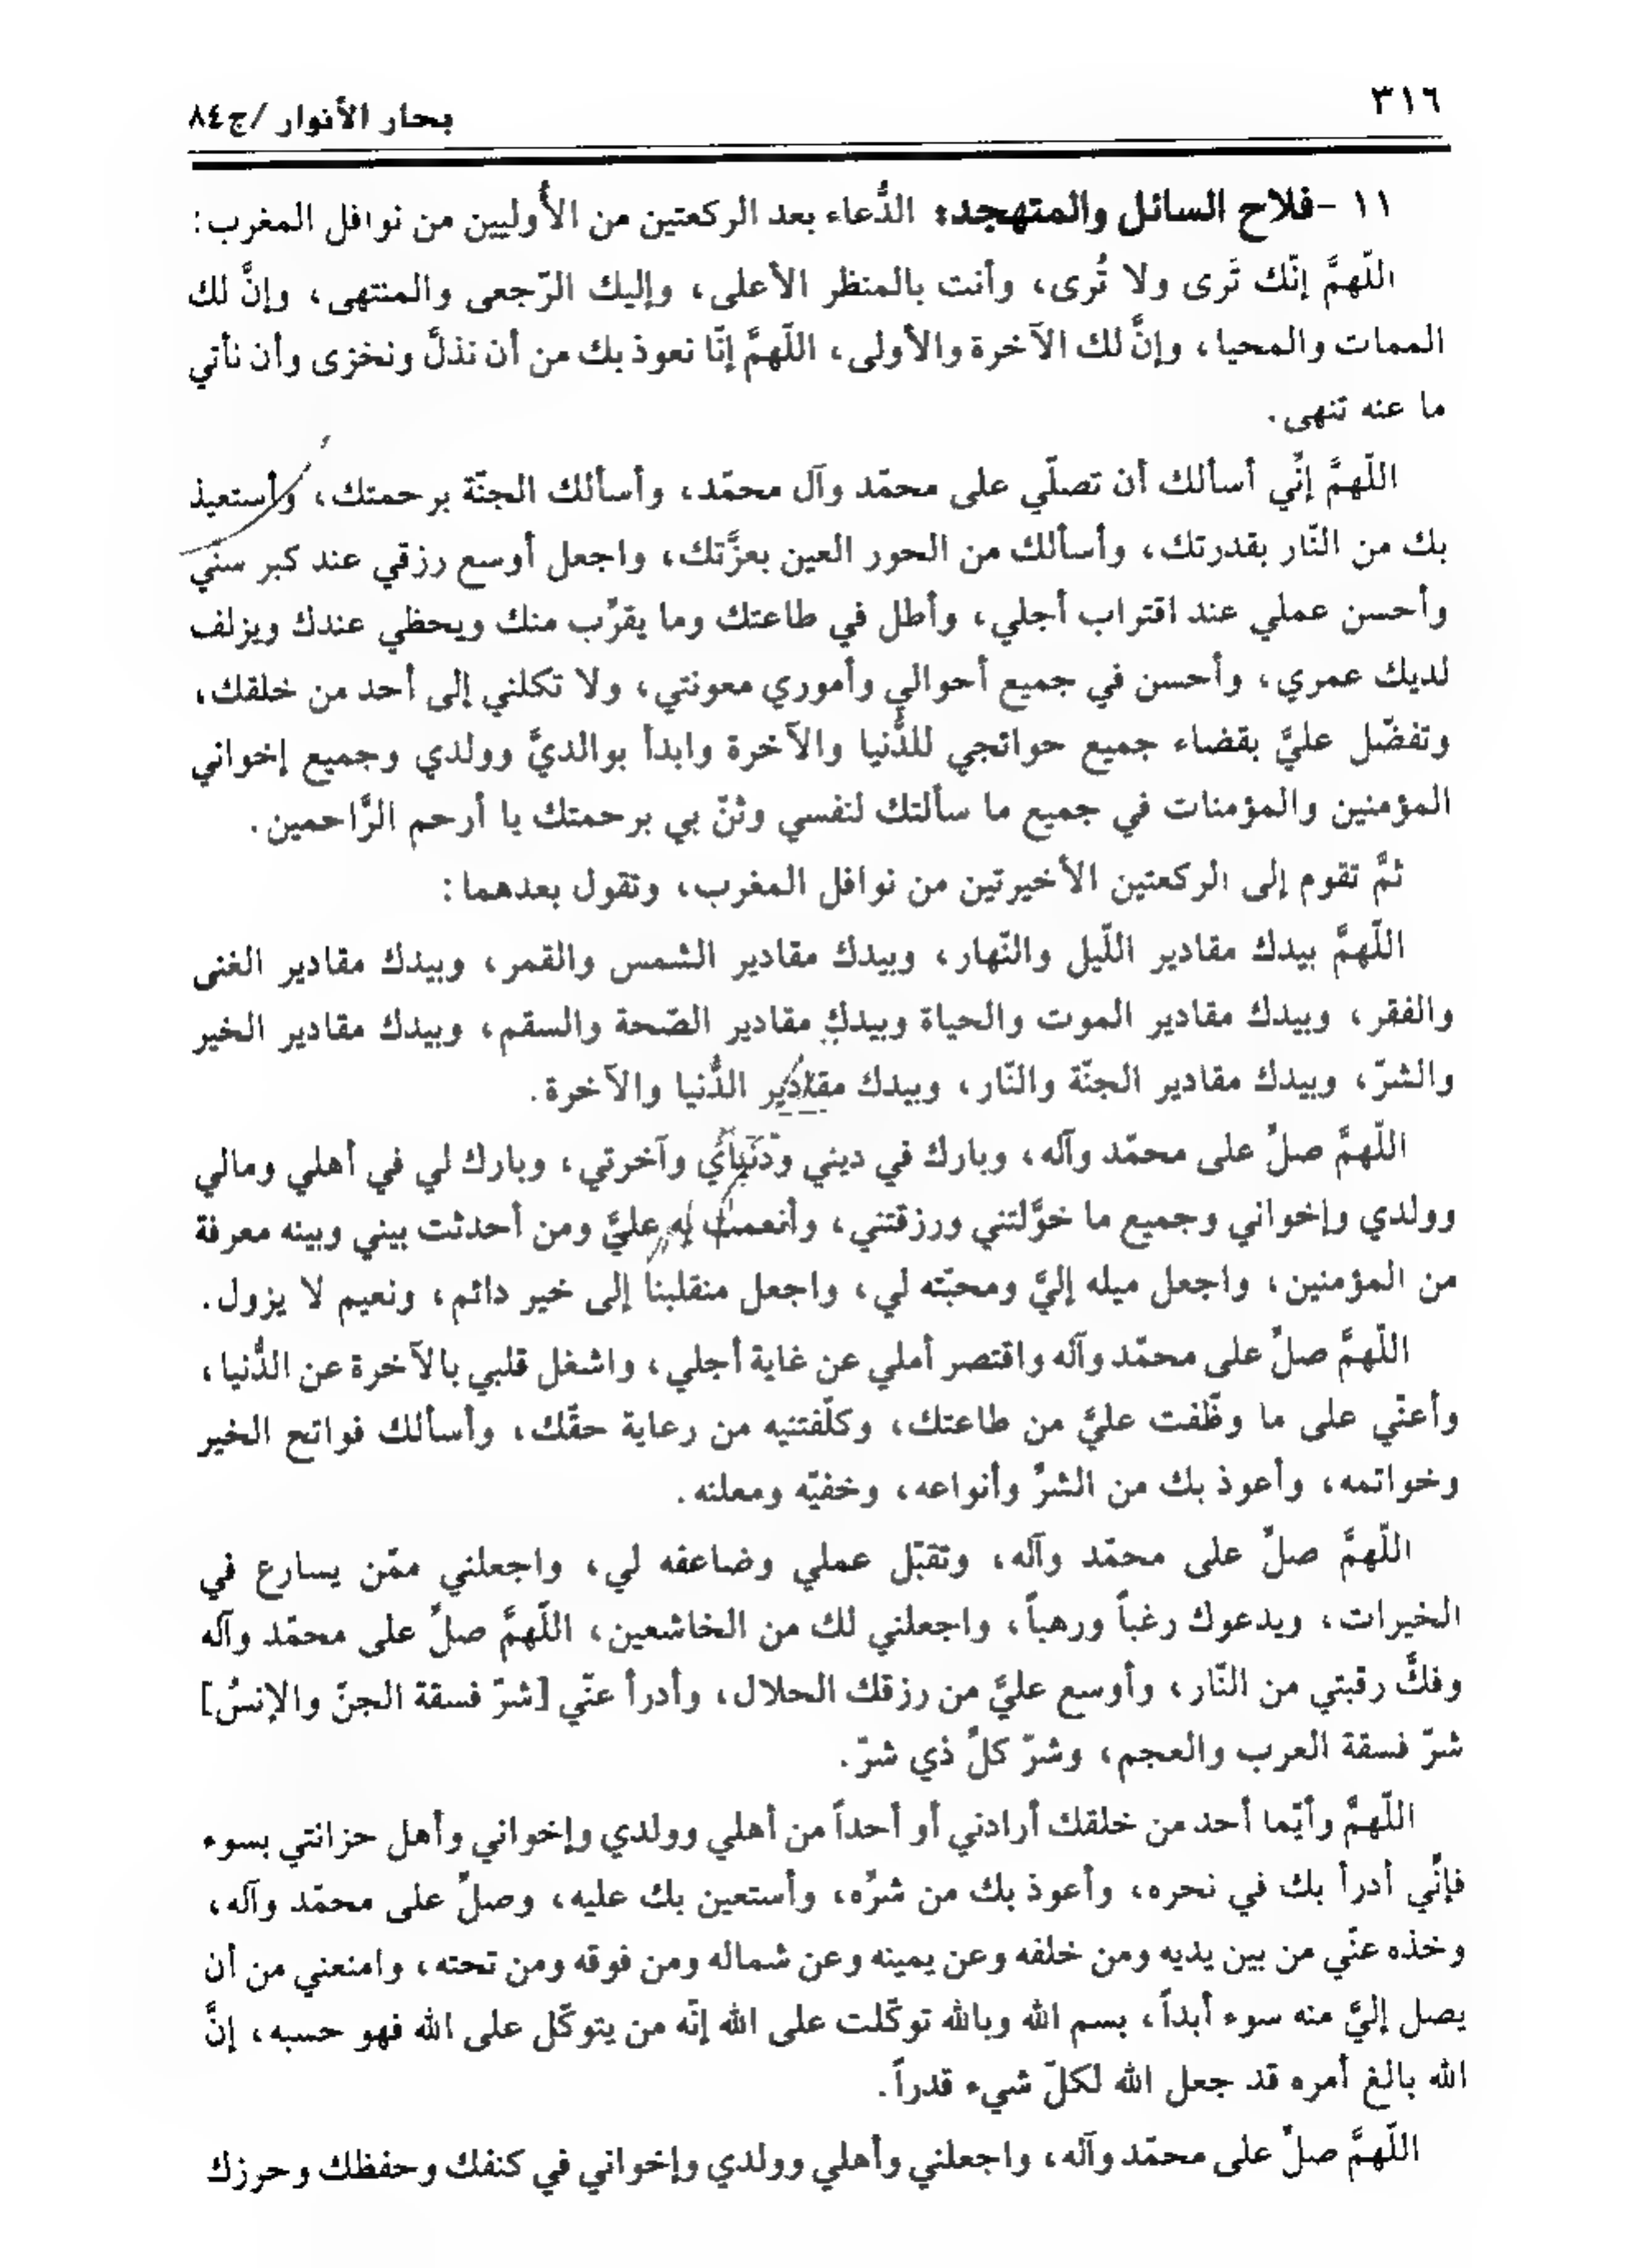 ٣١٦
بحار الأنوار /ج٨٤
١١ -فلاح السائل والمتهجد: الدُّعاء بعد الركعتين من الأُوليين من نوافل المغرب:
اللّهمَّ إنّك تَرى ولا تُرى، وأنت بالمنظر الأعلى، وإليك الرّجعى والمنتهى، وإنَّ لك
الممات والمحيا، وإنَّ لك الآخرة والأولى، اللّهمَّ إنّا نعوذ بك من أن نذلَّ ونخزى وأن نأتي
ما عنه تنهى.
اللّهمَّ إنّي أسألك أن تصلّي على محمّد وآل محمّد، وأسألك الجنّة برحمتك، وأستعيذ
بك من النّار بقدرتك، وأسألك من الحور العين بعزَّتك، واجعل أوسع رزقي عند كبر سنّي
وأحسن عملي عند اقتراب أجلي، وأطل في طاعتك وما يقرِّب منك ويحظي عندك ويزلف
لديك عمري، وأحسن في جميع أحوالي وأموري معونتي، ولا تكلني إلى أحد من خلقك،
وتفضّل عليَّ بقضاء جميع حوائجي للدُّنيا والآخرة وابدأ بوالديَّ وولدي وجميع إخواني
المؤمنين والمؤمنات في جميع ما سألتك لنفسي وثنّ بي برحمتك يا أرحم الرَّاحمين.
ثمَّ تقوم إلى الركعتين الأخيرتين من نوافل المغرب، وتقول بعدهما:
اللّهمَّ بيدك مقادير اللّيل والنّهار، وبيدك مقادير الشمس والقمر، وبيدك مقادير الغنى
والفقر، وبيدك مقادير الموت والحياة وبيدك مقادير الصّحة والسقم، وبيدك مقادير الخير
والشرّ، وبيدك مقادير الجنّة والنّار، وبيدك مقادير الدُّنيا والآخرة.
اللّهمَّ صلِّ على محمّد وآله، وبارك في ديني ودنياي وآخرتي، وبارك لي في أهلي ومالي
وولدي وإخواني وجميع ما خوَّلتني ورزقتني، وأنعمت به عليَّ ومن أحدثت بيني وبينه معرفة
من المؤمنين، واجعل ميله إليَّ ومحبّته لي، واجعل منقلبنا إلى خير دائم، ونعيم لا يزول.
اللّهمَّ صلِّ على محمّد وآله واقتصر أملي عن غاية أجلي، واشغل قلبي بالآخرة عن الدُّنيا،
وأعنّي على ما وظّفت عليَّ من طاعتك، وكلّفتنيه من رعاية حقّك، وأسألك فواتح الخير
وخواتمه، وأعوذ بك من الشرِّ وأنواعه، وخفيّه ومعلنه.
اللّهمَّ صلِّ على محمّد وآله، وتقبّل عملي وضاعفه لي، واجعلني ممّن يسارع في
الخيرات، ويدعوك رغباً ورهباً، واجعلني لك من الخاشعين، اللّهمَّ صلِّ على محمّد وآله
وفكَّ رقبتي من النّار، وأوسع عليَّ من رزقك الحلال، وأدرأ عنّي [شرّ فسقة الجنّ والإنسُ]
شرّ فسقة العرب والعجم، وشرّ كلِّ ذي شرّ.
اللّهمَّ وأيّما أحد من خلقك أرادني أو أحداً من أهلي وولدي وإخواني وأهل حزانتي بسوء
فإنّي أدرأ بك في نحره، وأعوذ بك من شرِّه، وأستعين بك عليه، وصلِّ على محمّد وآله،
وخذه عنّي من بين يديه ومن خلفه وعن يمينه وعن شماله ومن فوقه ومن تحته، وامنعني من أن
يصل إليَّ منه سوء أبداً، بسم الله وبالله توكّلت على الله إنّه من يتوكّل على الله فهو حسبه، إنَّ
الله بالغ أمره قد جعل الله لكلّ شيء قدراً.
اللّهمَّ صلِّ على محمّد وآله، واجعلني وأهلي وولدي وإخواني في كنفك وحفظك وحرزك